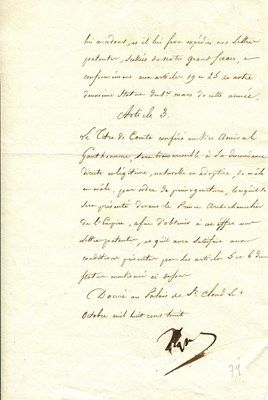 lui accordons, et il lui sera expédié nos lettres
patentes, scellées de notre grand sceau, et
conformément aux articles 19 et 25 de notre
deuxième Statut du 1er mars de cette année.
Article 3.
Le Titre de Comte conféré au Vice Amiral
Gantheaume sera transmissible à sa descendance
directe et légitime, naturelle ou adoptive, de mâle
en mâle, par ordre de primogéniture, lorsqu'il se
sera présenté devant le Prince Archichancelier
de l'Empire, afin d'obtenir à cet effet nos
lettres patentes, et qu'il aura satisfait aux
conditions prescrites par les articles 5 et 6 du
Statut mentionné ci dessus
Donné au Palais de St Cloud le
Octobre mil huit cent huit
74